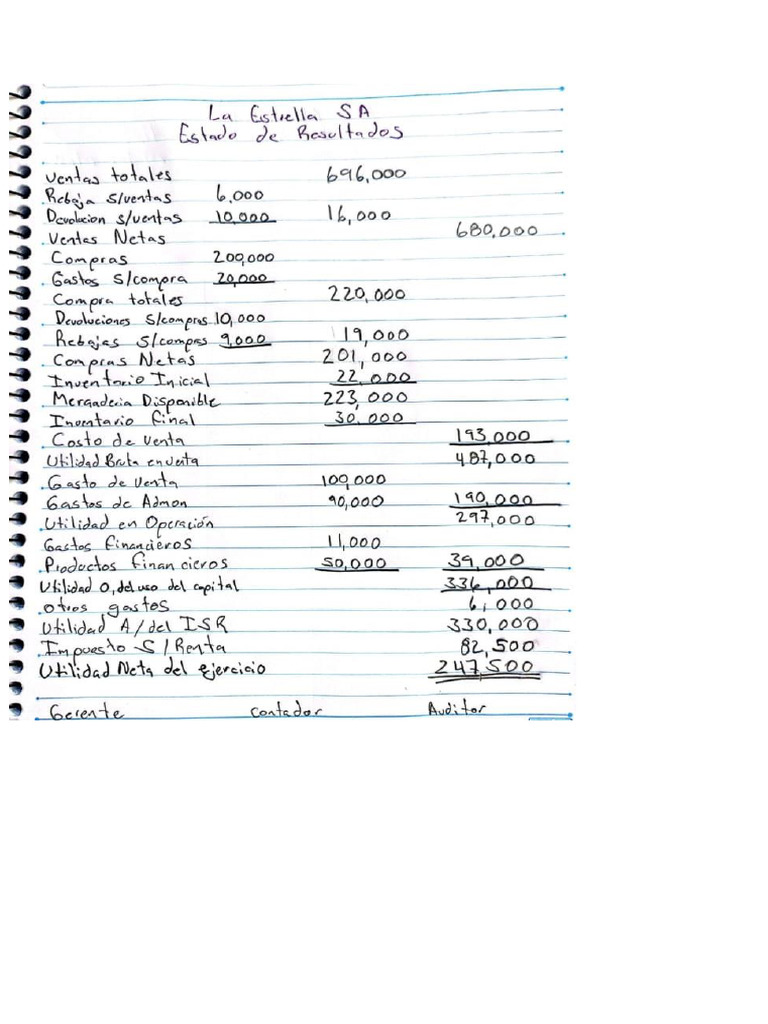 La Estrella SA
Estado de Resultados
Ventas totales 696,000
Rebaja s/ventas 6.000
Devolucion s/ventas 10,000 16,000
Ventas Netas 680,000
Compras 200,000
Gastos s/compra 20,000
Compra totales 220,000
Devoluciones s/compras 10,000
Rebajas s/compras 9,000 19,000
Compras Netas 201,000
Inventario Inicial 22,000
Mercaderia Disponible 223,000
Inventario final 30,000
Costo de venta 193,000
Utilidad Bruta en venta 487,000
Gasto de venta 100,000
Gastos de Admon 90,000 190,000
Utilidad en Operación 297,000
Gastos financieros 11,000
Productos financieros 50,000 39,000
Utilidad O, del uso del capital 336,000
otros gastos 6,000
Utilidad A/del ISR 330,000
Impuesto S/Renta 82,500
Utilidad Neta del ejercicio 247,500
Gerente Contador Auditor